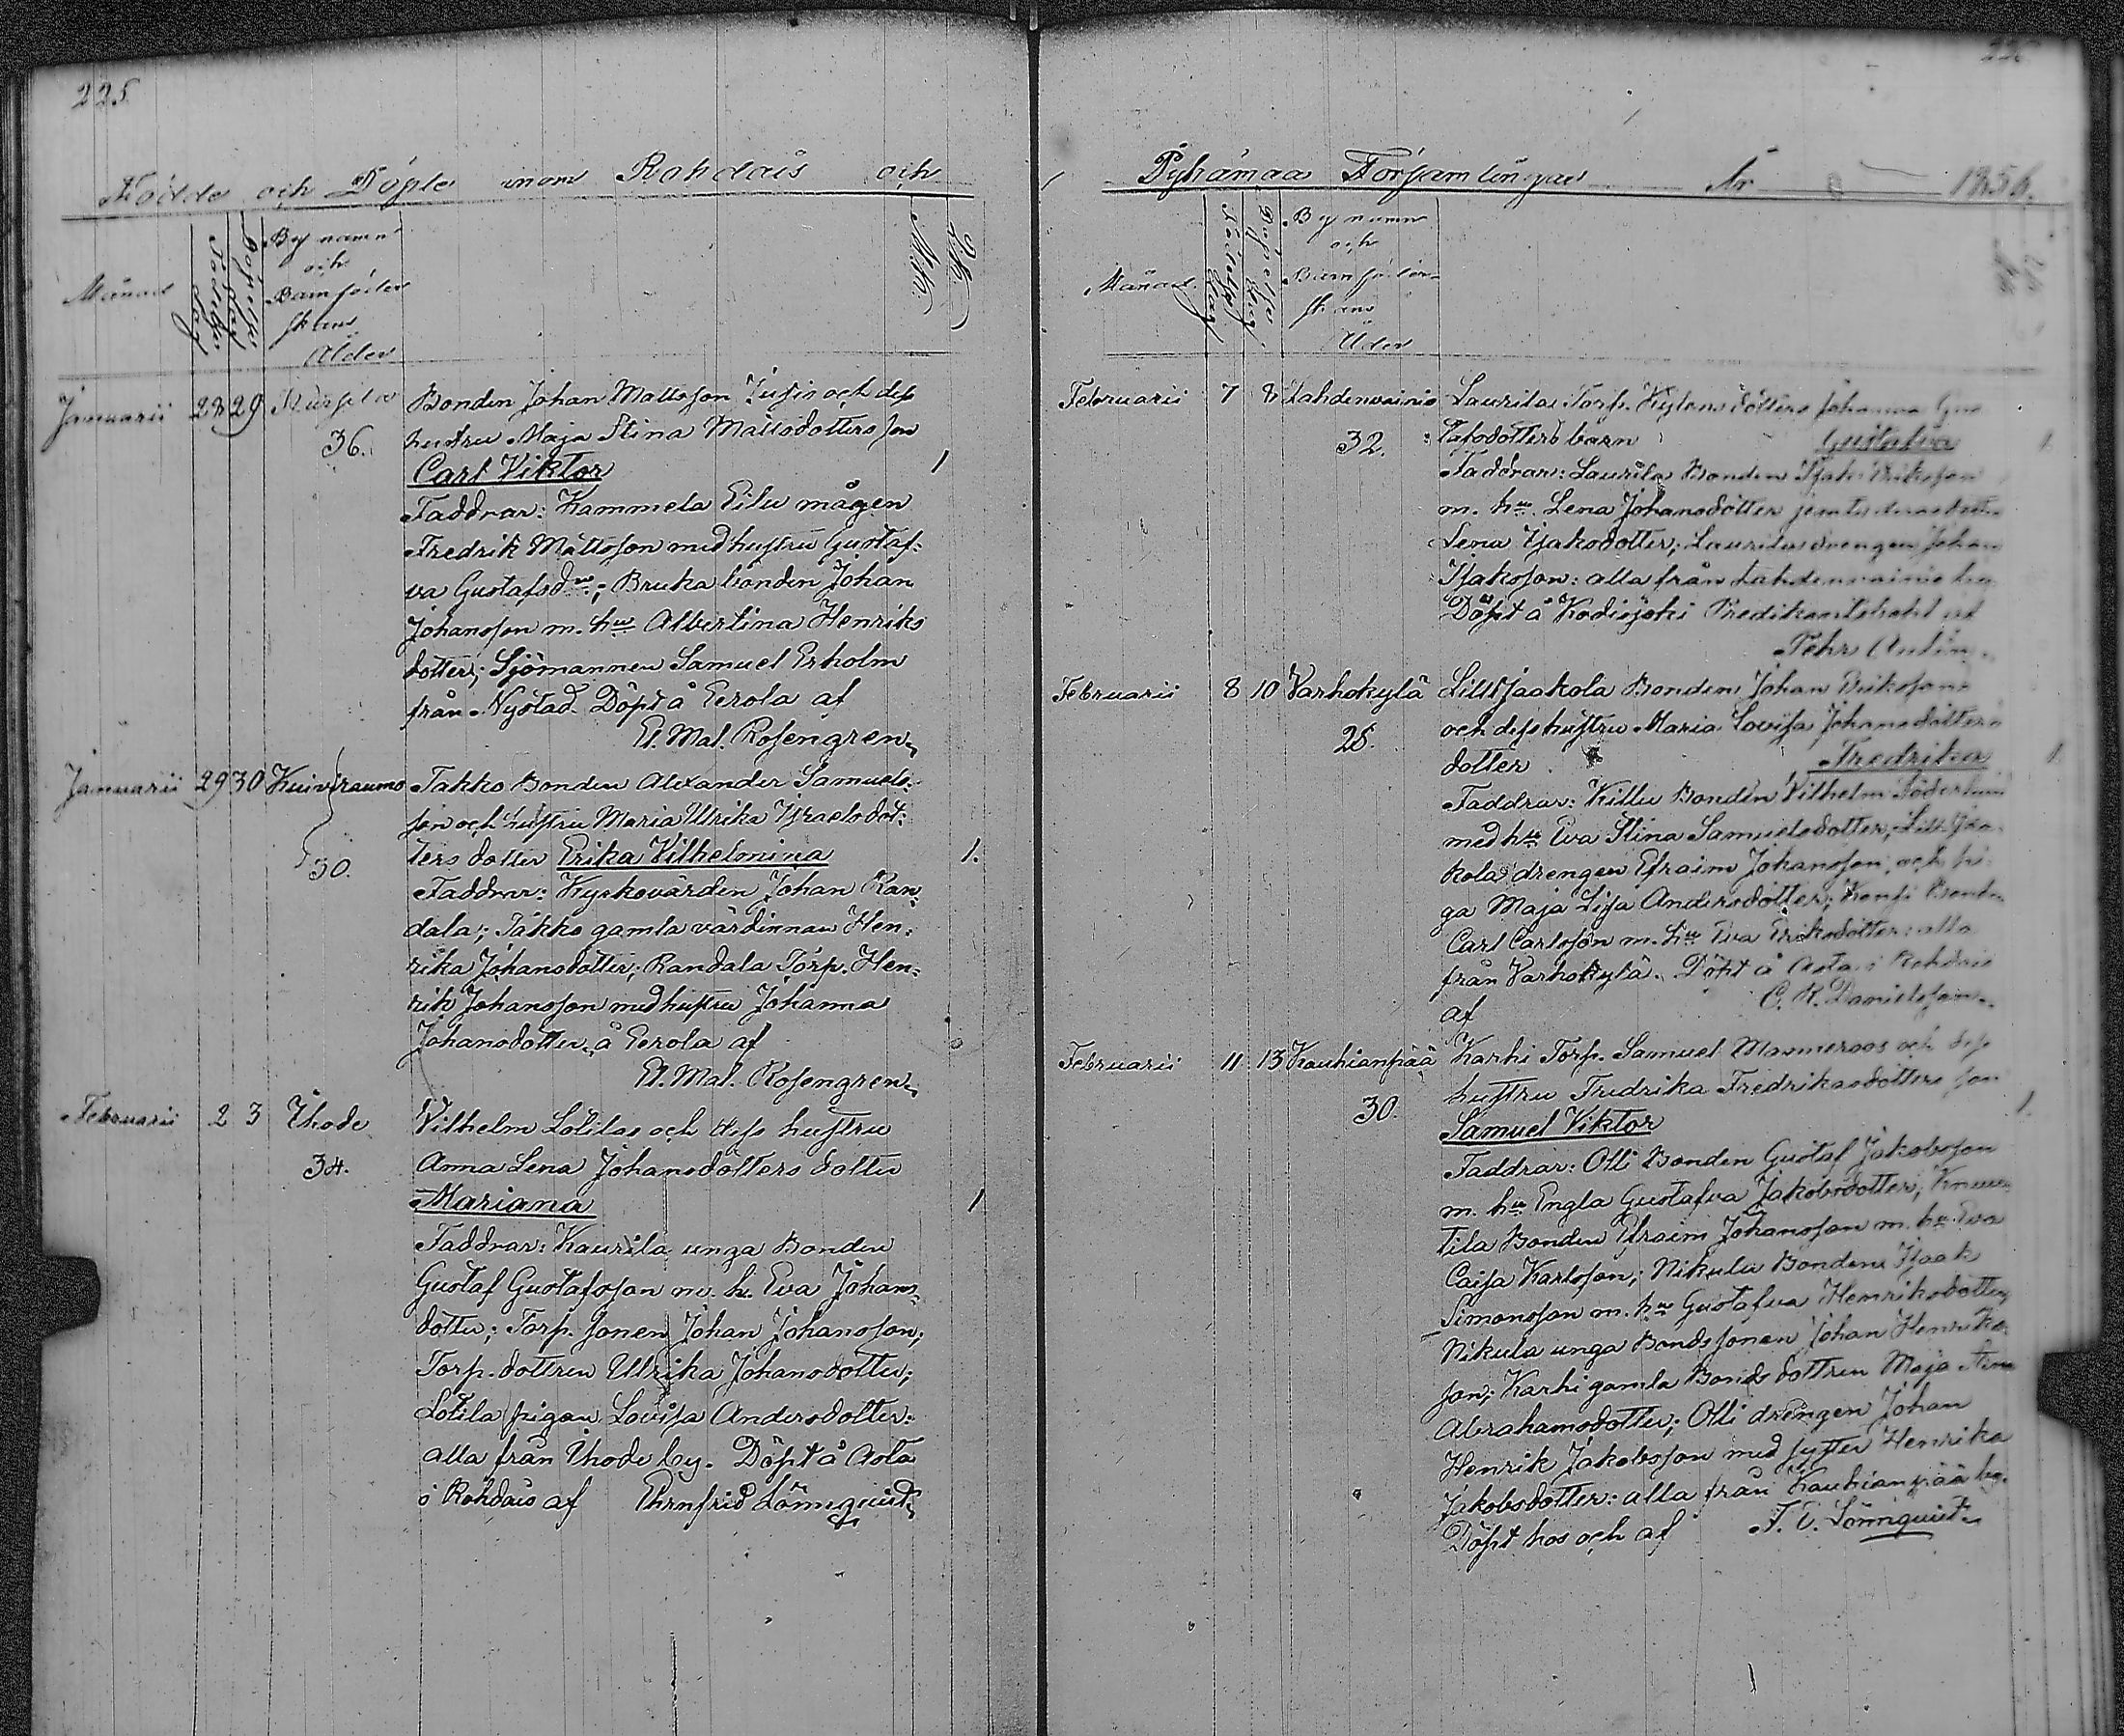 225
Födde och Döpte inom Rohdais och
Månad
Födelse dag
Döpelse dag
By namn
och
Barnföder
skans
Ålder
M.k.
Q.k.
Januarii 28 29
36.
Bonden Johan Mattsson och dess
hustru Maja Stina Mattsdotters son
Carl Viktor 1
Faddrar: Kammela Eilu mågen
Fredrik Mattsson med hustru Gustaf-
va Gustafsdr; Bruka bonden Johan
Johansson m. hu Albertina Henriks
dotter; Sjömannen Samuel Erholm
från Nystad. Döpt å Eerola af
El. Mal. Rosengren
Januarii 29 30 Kuivrauma
30.
Takko Bonden Alexander Samuels-
son och hustru Maria Ulrika Israelsdot-
ters dotter Erika Vilhelmina 1.
Faddrar: Kyrkovärden Johan Ran-
dala; Takko gamla värdinnan Hen-
rika Johansdotter; Randala Torp. Hen-
rik Johansson med hustru Johanna
Johansdotter, å Eerola af
El. Mal. Rosengren
Februarii 2 3 Ihode
34.
Vilhelm Lötilas och dess hustru
Anna Lena Johansdotters dotter
Mariana 1
Faddrar: Kaurila unga Bonden
Gustaf Gustafsson m. h. Eva Johans-
dotter; Torp. sonen Johan Johansson;
Torp. dottren Ullrika Johansdotter;
Lötila pigan Lovisa Andersdotter:
alla från Ihode by. Döpt å Aota
i Rohdais af Ehrnfrid Lönnquist
Pyhämaa Församlingar År 1856.
Månad
Födelse dag
Döpelse dag
By namn
och
Barnföder-
skans
Ålder
Februarii 7 8 Lahdenvainio
32.
Laurila Torp. dotters Johanna Gus
tafsdotters barn Gustafva 1
Faddrar: Laurila Bonden Isak Eriksson
m. hu Lena Johansdotter jemte
Lena Isaksdotter; Laurilas drengen Johan
Isaksson: alla från Lahdenvainio by
Döpt å Kodisjoki Predikantshåhl af
Fehr Aulin.
Februarii 8 10 Varhokylä
28.
Lill Jaakola Bonden Johan Erikssons
och dess hustru Maria Lovisa Johansdotters
dotter Fredrika 1
Faddrar: Killu Bonden Vilhelm Söderlund
med hu Eva Stina Samuelsdotter; Lill Jaa-
kola drengen Efraim Johansson, och pi-
ga Maja Lisa Andersdotter; Bonden
Carl Carlsson m. hu Eva Eriksdotter: alla
från Varhokylä. Döpt å Aota i Rohdais
af C. R. Danielsson.
Februarii 11 13 Kauhianpää
30.
Karhi Torp. Samuel Manneroos och dess
hustru Fredrika Fredriksdotters son
Samuel Viktor 1.
Faddrar: Olli Bonden Gustaf Jakobsson
m. hu Engla Gustafva Jakobsdotter;
tila Bonden Efraim Johansson m. hu Eva
Caisa Karlsson; Nikula Bonden Isaak
Simonsson m. hu Gustafva Henriksdotter
Nikula unga Bondssonen Johan Henriks-
son; Karhi gamla Bonds dottren Maja Stina
Abrahamsdotter; Olli drengen Johan
Henrik Jakobsson med syster Henrika
Jakobsdotter: alla från Kauhianpää by.
Döpt hos och af F. E. Lönnquist